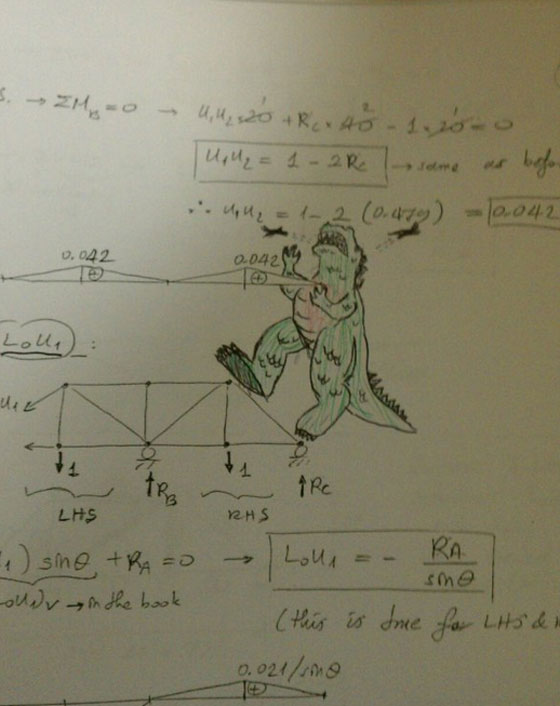 s. → ΣM_B = 0 → U₁U₂ × 20 + R_C × 40 − 1 × 20 = 0
U₁U₂ = 1 − 2R_C → same as befo
∴ U₁U₂ = 1 − 2 (0.479) = 0.042
0.042 ⊕ 0.042 ⊕
L₀U₁ :
U₁
1 R_B 1 R_C
LHS RHS
₁) sinθ + R_A = 0 → L₀U₁ = − R_A / sinθ
₀U₁)ᵥ → in the book
(this is true for LHS &
0.021/sinθ
⊕